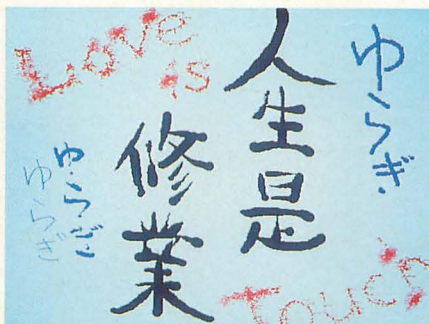 Love
is
人生是
修業
ゆらぎ
ゆらぎ
ゆらぎ
Touch